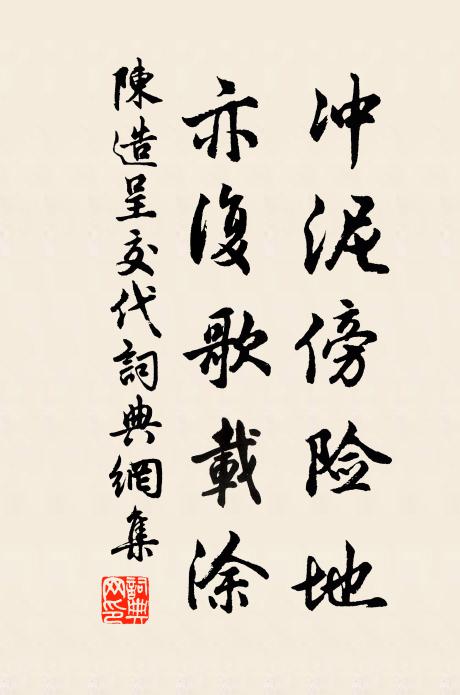 冲泥傍险地
亦復歌載涂
陳造呈交代詞典網集
詞典网印